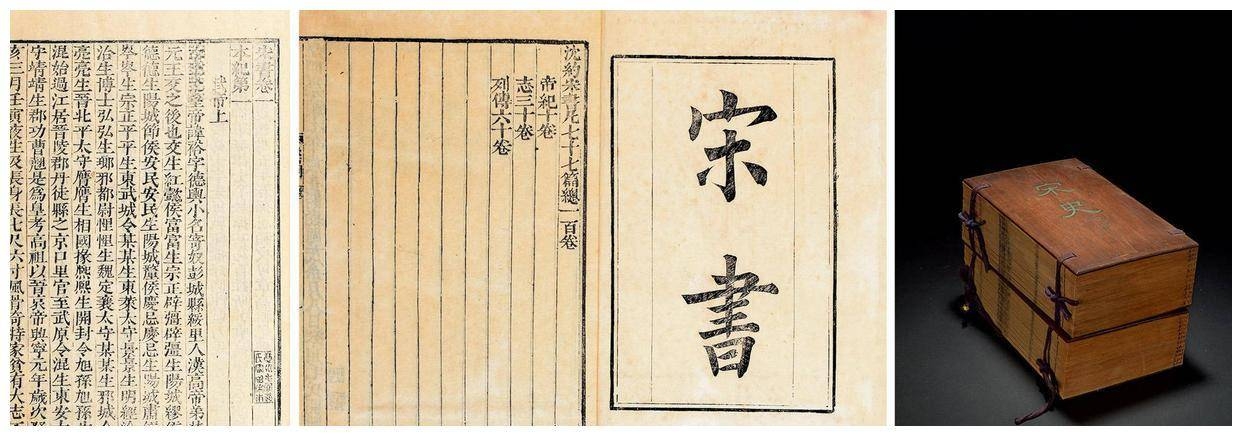 宋書卷一
本紀第一
武帝上
高祖武皇帝諱裕字德輿小名寄奴彭城縣綏里人漢高帝弟楚
元王交之後也交生紅懿侯富富生宗正辟彊辟彊生陽城繆侯
德德生陽城節侯安民安民生陽城釐侯慶忌慶忌生陽城肅侯
岑岑生宗正平平生東武城令某某生東萊太守景景生明經洽
洽生博士弘弘生琅邪都尉悝悝生魏定襄太守某某生邪城令
亮亮生晉北平太守膺膺生相國掾熙熙生開封令旭孫旭孫生
混始過江居晉陵郡丹徒縣之京口里官至武原令混生東安太
守靖靖生郡功曹翹是為皇考高祖以晉哀帝興寧元年歲次
亥三月壬寅夜生及長身長七尺六寸風骨奇特家貧有大志不
宋書
沈約宋書凡七十七篇總一百卷
帝紀十卷
志三十卷
列傳六十卷
宋史